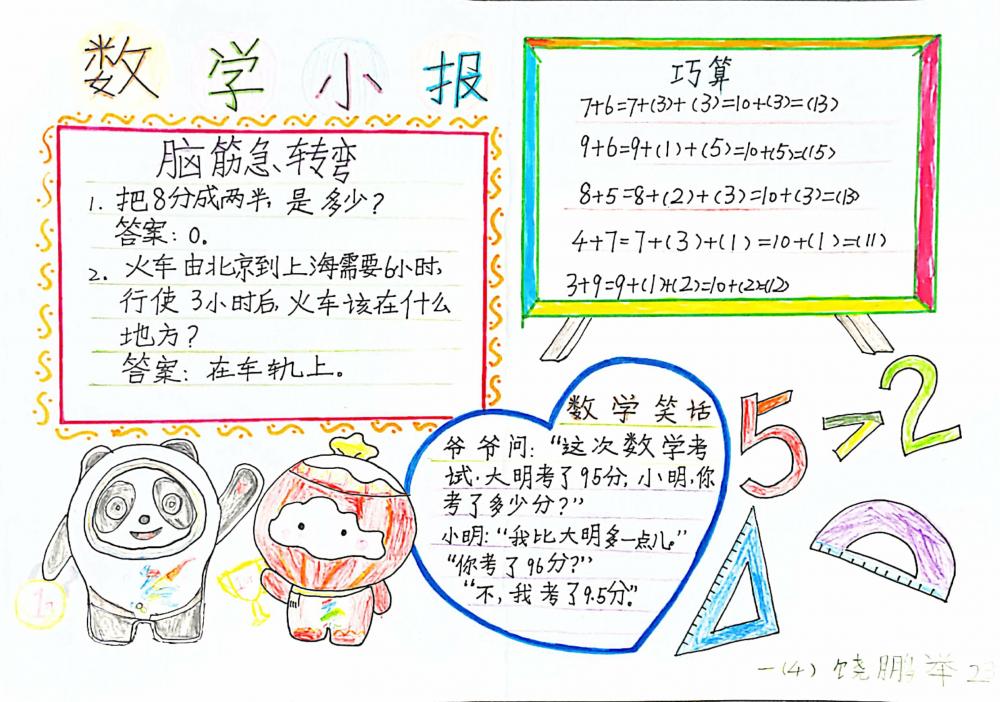 数学小报
脑筋急转弯
1. 把8分成两半,是多少?
答案:0。
2. 火车由北京到上海需要6小时,
行使3小时后,火车该在什么
地方?
答案:在车轨上。
巧算
7+6=7+(3)+(3)=10+(3)=(13)
9+6=9+(1)+(5)=10+(5)=(15)
8+5=8+(2)+(3)=10+(3)=(13)
4+7=7+(3)+(1)=10+(1)=(11)
3+9=9+(1)+(2)=10+(2)=(12)
数学笑话
爷爷问:“这次数学考
试.大明考了95分,小明,你
考了多少分?”
小明:“我比大明多一点儿。”
“你考了96分?”
“不,我考了9.5分”。
5>2
1
一(4) 饶鹏举 23